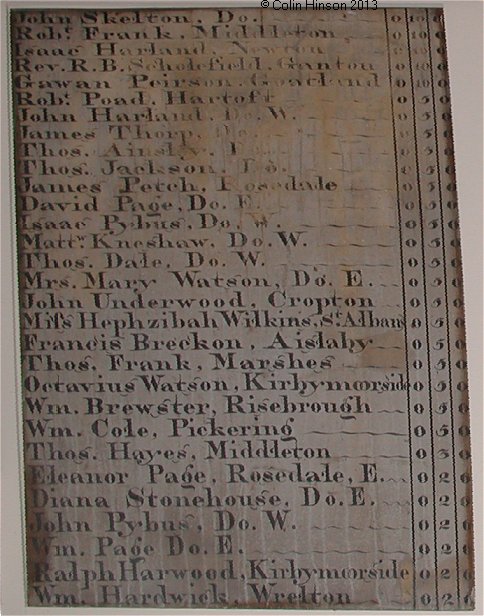 ©Colin Hinson 2013
John Skelton, Do. 0 10 0
Robt. Frank, Middleton 0 10 0
Isaac Harland, Newton 0 10 0
Rev. R.B. Scholefield, Ganton 0 10 0
Gawan Peirson, Goatland 0 10 0
Robt. Poad, Hartoft 0 5 0
John Harland, Do. W. 0 5 0
James Thorp, Do. 0 5 0
Thos. Ainsley, 0 5 0
Thos. Jackson, Do. 0 5 0
James Petch, Rosedale 0 5 0
David Page, Do. E. 0 5 0
Isaac Pybus, Do. W. 0 5 0
Mattw. Kneshaw, Do. W. 0 5 0
Thos. Dale, Do. W. 0 5 0
Mrs. Mary Watson, Do. E. 0 5 0
John Underwood, Cropton 0 5 0
Miſs Hephzibah Wilkins, St. Albans 0 5 0
Francis Breckon, Aislaby 0 5 0
Thos. Frank, Marshes 0 5 0
Octavius Watson, Kirbymoorside 0 5 0
Wm. Brewster, Risebrough 0 5 0
Wm. Cole, Pickering 0 5 0
Thos. Hayes, Middleton 0 3 0
Eleanor Page, Rosedale, E. 0 2 6
Diana Stonehouse, Do. E. 0 2 6
John Pybus, Do. W. 0 2 6
Wm. Page Do. E. 0 2 6
Ralph Harwood, Kirbymoorside 0 2 6
Wm. Hardwick, Wrelton 0 2 6